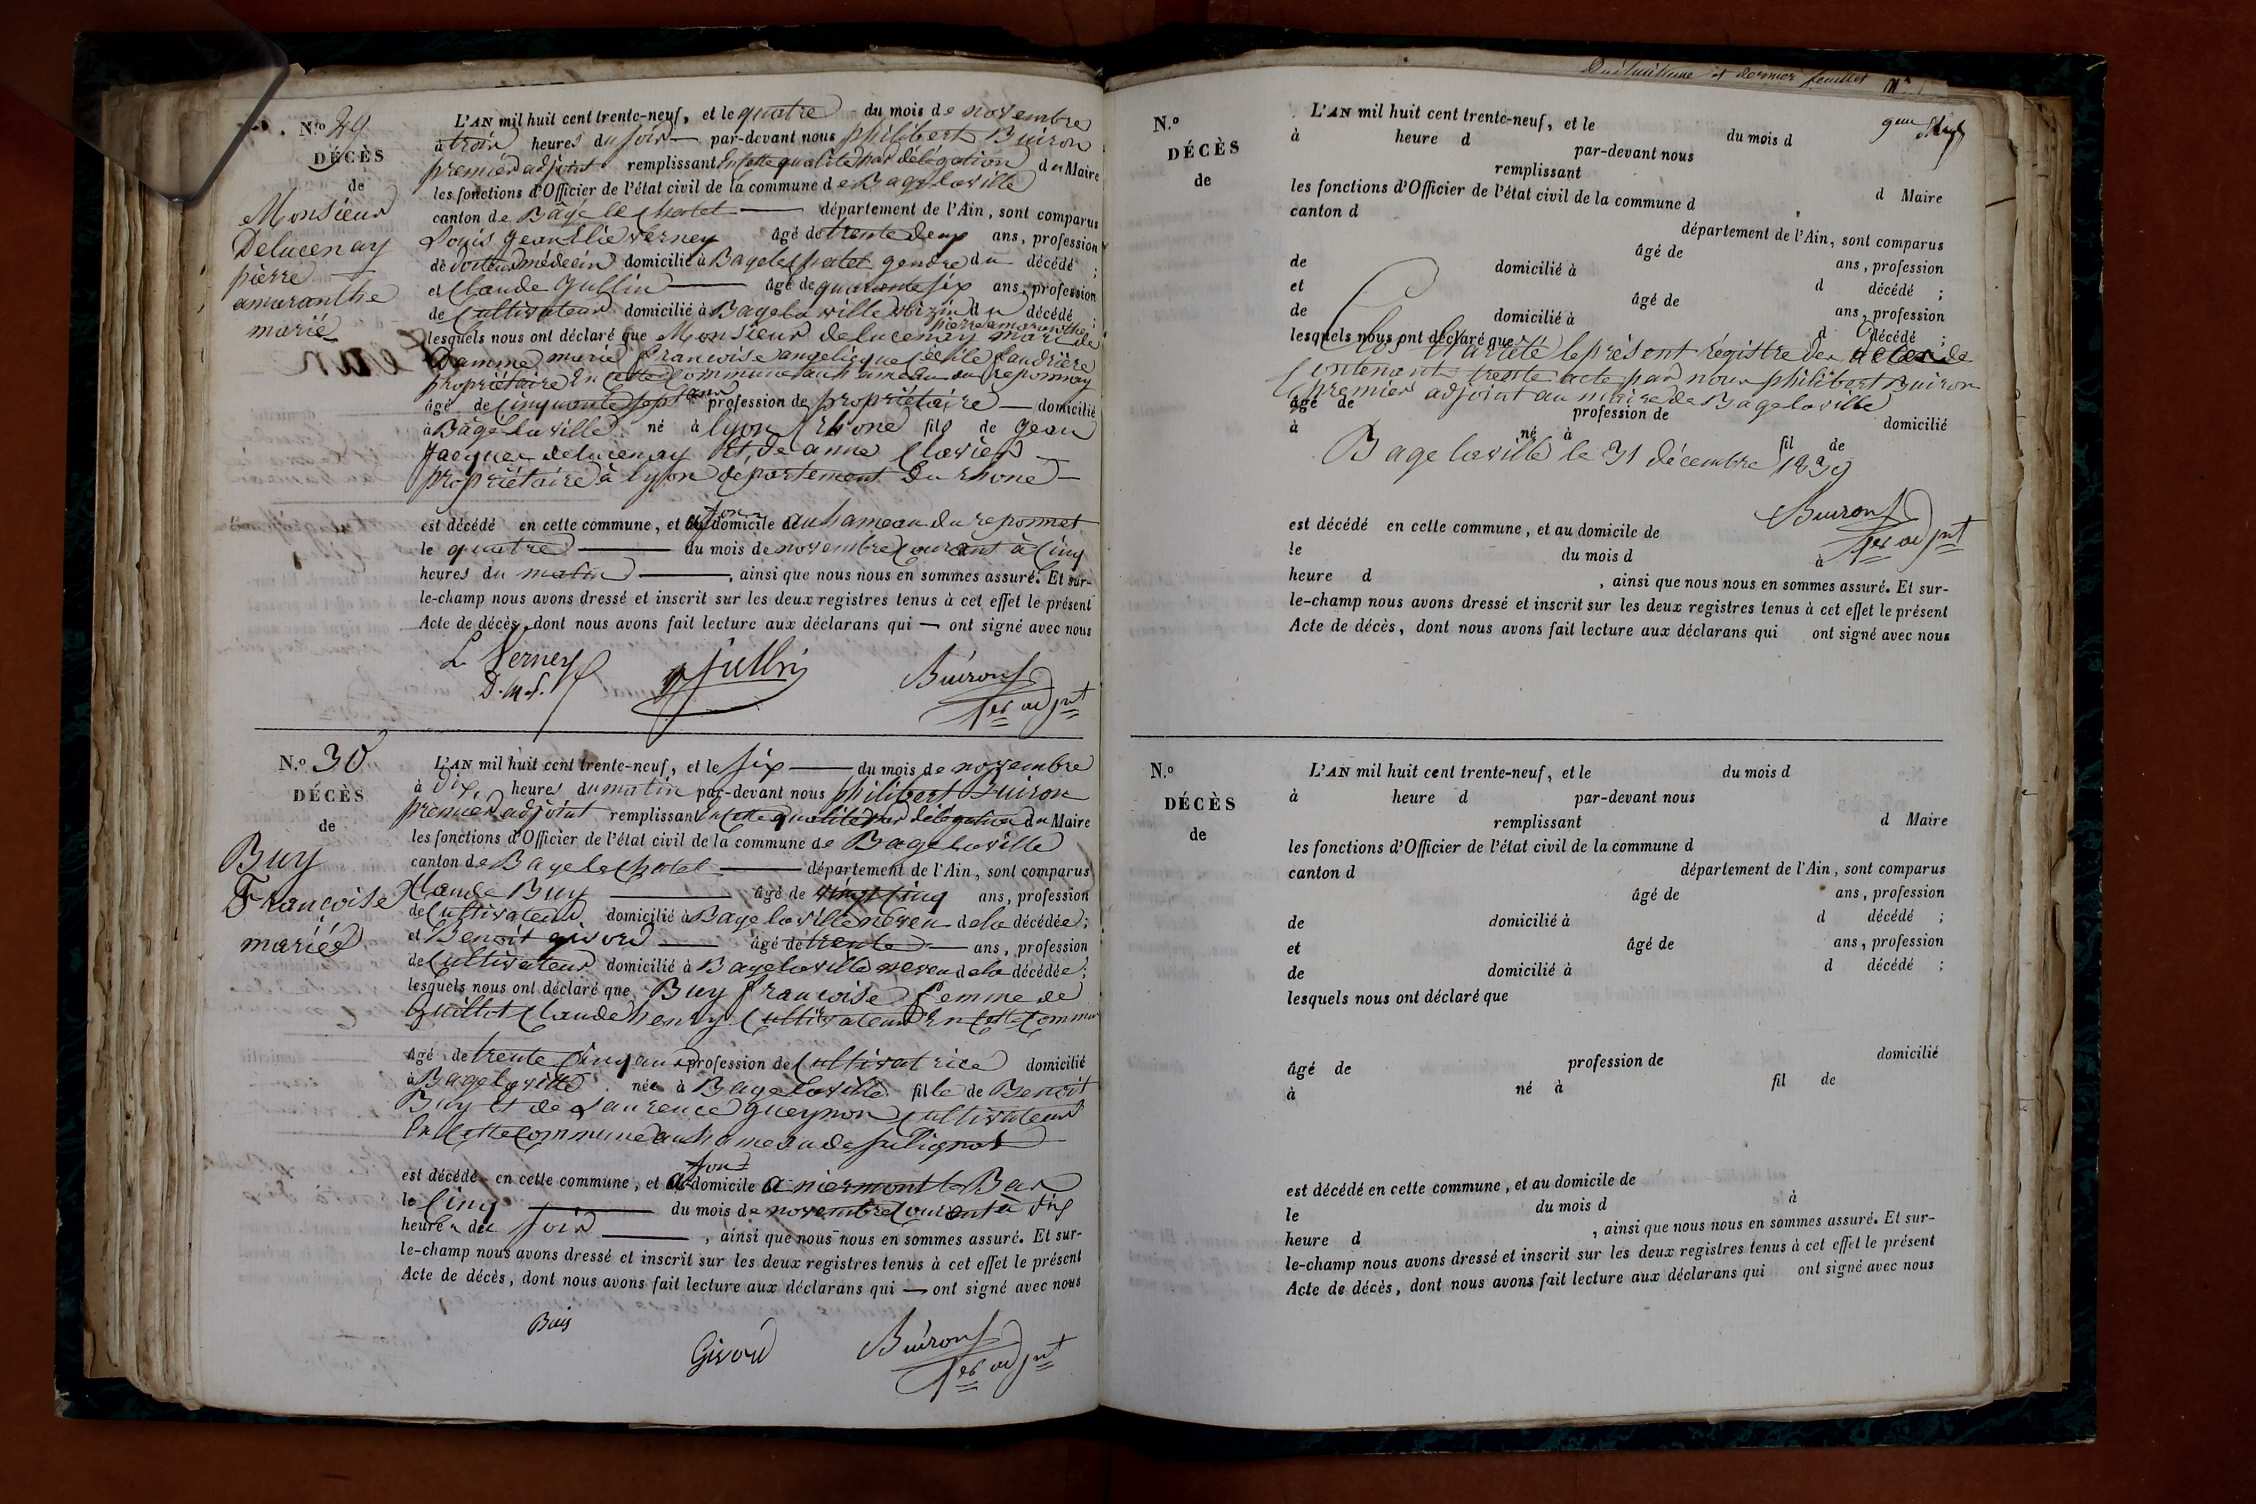 N.ro 29
DÉCÈS
de
Monsieur
Delucenay
pierre
amaranthe
marié
L'AN mil huit cent trente-neuf, et le quatre du mois de novembre
à trois heures du soir par-devant nous philibert Buiron
premier adjoint remplissant en cette qualité par délégation du Maire
les fonctions d'Officier de l'état civil de la commune de Bagé laville
canton de Bâgé le Chatel département de l'Ain, sont comparus
Louis jean Elie verney âgé de trente deux ans, profession
de docteur médecin domicilié à Bage le chatel gendre du décédé ;
et Claude Gullin âgé de quarante six ans, profession
de Cultivateur domicilié à Bage la ville voizin du décédé ;
pierre amaranthe
lesquels nous ont déclaré que Monsieur delucenay mari de
Damme marie francoise angelique Cécile
propriétaire En cette Commune au hameau du reponnay
âgé de Cinquante sept ans profession de propriétaire domicilié
à Bâgé la ville né à lyon rhone fils de jean
jacques delucenay Et de anne
propriétaire à lyon departement Du rhone
est décédé en cette commune, et son domicile au hameau du reponnet
le quatre du mois de novembre Courant à Cinq
heures du matin, ainsi que nous nous en sommes assuré. Et sur-
le-champ nous avons dressé et inscrit sur les deux registres tenus à cet effet le présent
Acte de décès, dont nous avons fait lecture aux déclarans qui — ont signé avec nous
L. Verney
D. M.
Gullin
Buiron
1er adjnt
N.o 30
DÉCÈS
de
Buy
Francoise
mariée
L'AN mil huit cent trente-neuf, et le six du mois de novembre
à Dix heures du matin par-devant nous philibert Buiron
premier adjoint remplissant en cette qualité par délégation du Maire
les fonctions d'Officier de l'état civil de la commune de Bagé laville
canton de Bage le Chatel département de l'Ain, sont comparus
Claude Buy âgé de vingt Cinq ans, profession
de Cultivateur domicilié à Bage la ville neveu de la décédée ;
et Benoit givord âgé de trente ans, profession
de Cultivateur domicilié à Bage la ville neveu de la décédée ;
lesquels nous ont déclaré que Buy francoise femme de
Guillot Claude henry Cultivateur En Cette Commune
âgé de trente Cinq ans profession de Cultivatrice domicilié
à Bage la ville née à Bage la ville fille de Benoit
Buy Et de Laurence Cultivateurs
En Cette Commune au hameau de
son
est décédé en cette commune, et domicile a niermont le Bas
le Cinq du mois de novembre Courant à six
heures du soir, ainsi que nous nous en sommes assuré. Et sur-
le-champ nous avons dressé et inscrit sur les deux registres tenus à cet effet le présent
Acte de décès, dont nous avons fait lecture aux déclarans qui — ont signé avec nous
Buis
Givord
Buiron
1er adjnt
et dernier feuillet
N.o
DÉCÈS
de
L'AN mil huit cent trente-neuf, et le du mois d
à heure d par-devant nous
remplissant d Maire
les fonctions d'Officier de l'état civil de la commune d
canton d département de l'Ain, sont comparus
âgé de ans, profession
de domicilié à d décédé ;
et âgé de ans, profession
de domicilié à d décédé ;
lesquels nous ont déclaré que
Clos Et arrêté le présent régistre des actes de
Contenant trente acte par nous philibert Buiron
premier adjoint au maire de Bage la ville
âgé de profession de domicilié
à né à fil de
Bage laville le 31 décembre 1839
Buiron
1er adjnt
est décédé en cette commune, et au domicile de
le du mois d à
heure d, ainsi que nous nous en sommes assuré. Et sur-
le-champ nous avons dressé et inscrit sur les deux registres tenus à cet effet le présent
Acte de décès, dont nous avons fait lecture aux déclarans qui ont signé avec nous
N.o
DÉCÈS
de
L'AN mil huit cent trente-neuf, et le du mois d
à heure d par-devant nous
remplissant d Maire
les fonctions d'Officier de l'état civil de la commune d
canton d département de l'Ain, sont comparus
âgé de ans, profession
de domicilié à d décédé ;
et âgé de ans, profession
de domicilié à d décédé ;
lesquels nous ont déclaré que
âgé de profession de domicilié
à né à fil de
est décédé en cette commune, et au domicile de
le du mois d à
heure d, ainsi que nous nous en sommes assuré. Et sur-
le-champ nous avons dressé et inscrit sur les deux registres tenus à cet effet le présent
Acte de décès, dont nous avons fait lecture aux déclarans qui ont signé avec nous